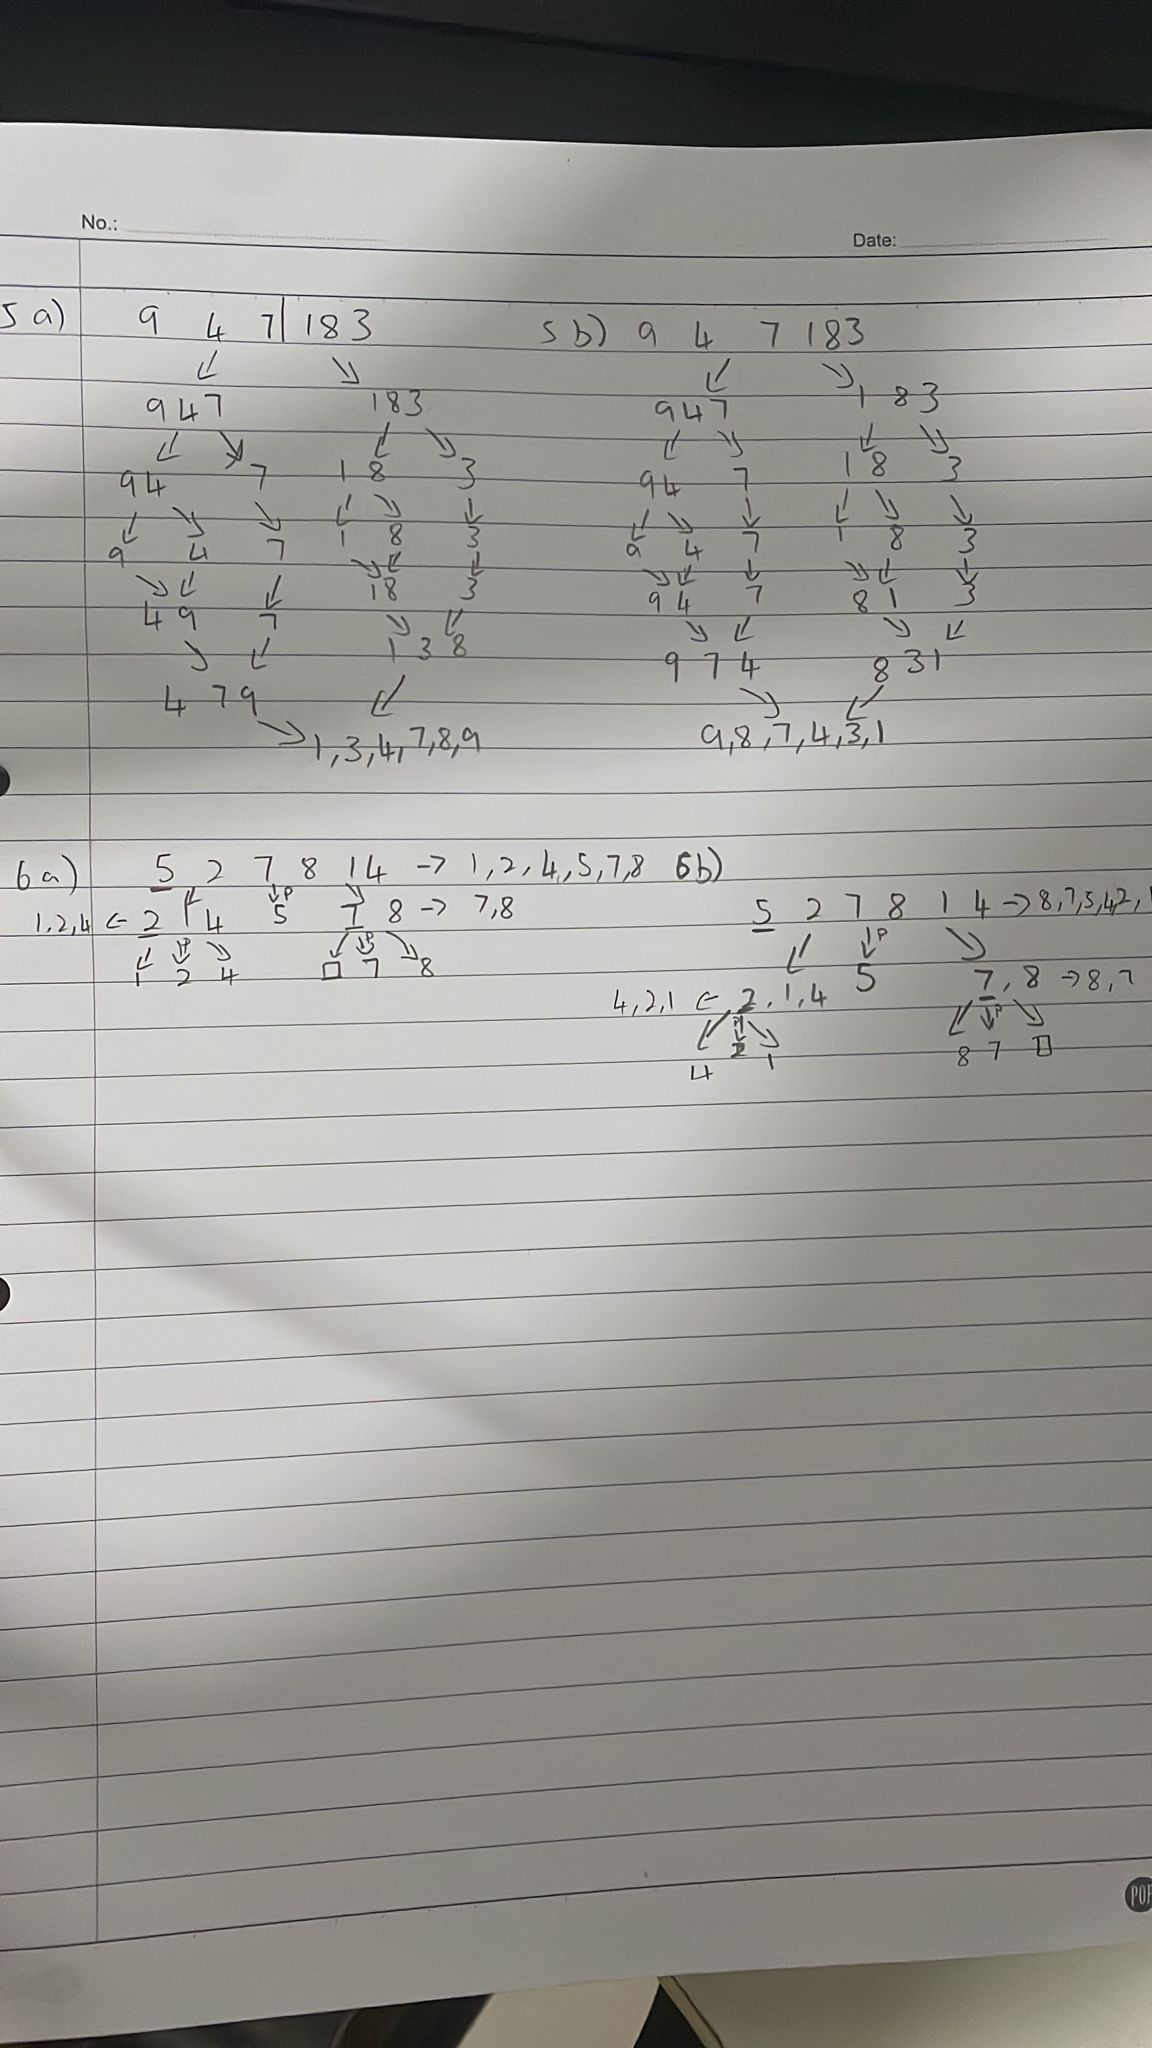 No.:
Date:
5 a) 9 4 7 | 1 8 3
9 4 7 1 8 3
↙ ↘ ↙ ↘
9 4 7 1 8 3
↙ ↘ ↘ ↙ ↘ ↓
9 4 7 1 8 3
↘ ↙ ↙ ↘ ↙ ↓
4 9 7 1 8 3
↘ ↙ ↘ ↙
1 3 8
4 7 9
1,3,4,7,8,9
5 b) 9 4 7 1 8 3
↙ ↘
9 4 7 1 8 3
↙ ↘ ↙ ↘
9 4 7 1 8 3
↙ ↘ ↓ ↙ ↘ ↘
9 4 7 1 8 3
↘ ↙ ↓ ↘ ↙ ↓
9 4 7 8 1 3
↘ ↙ ↘ ↙
9 7 4 8 3 1
↘ ↙
9,8,7,4,3,1
6 a) 5 2 7 8 1 4 → 1,2,4,5,7,8
↙ ↓P ↘
1,2,4 ← 2 1 4 5 7 8 → 7,8
↙ ↓P ↘ ↙ ↓P ↘
1 2 4 □ 7 8
6b)
5 2 7 8 1 4 → 8,7,5,4,2,1
↙ ↓P ↘
4,2,1 ← 2,1,4 5 7,8 → 8,7
↙ ↓P ↘ ↙ ↓P ↘
4 2 1 8 7 □